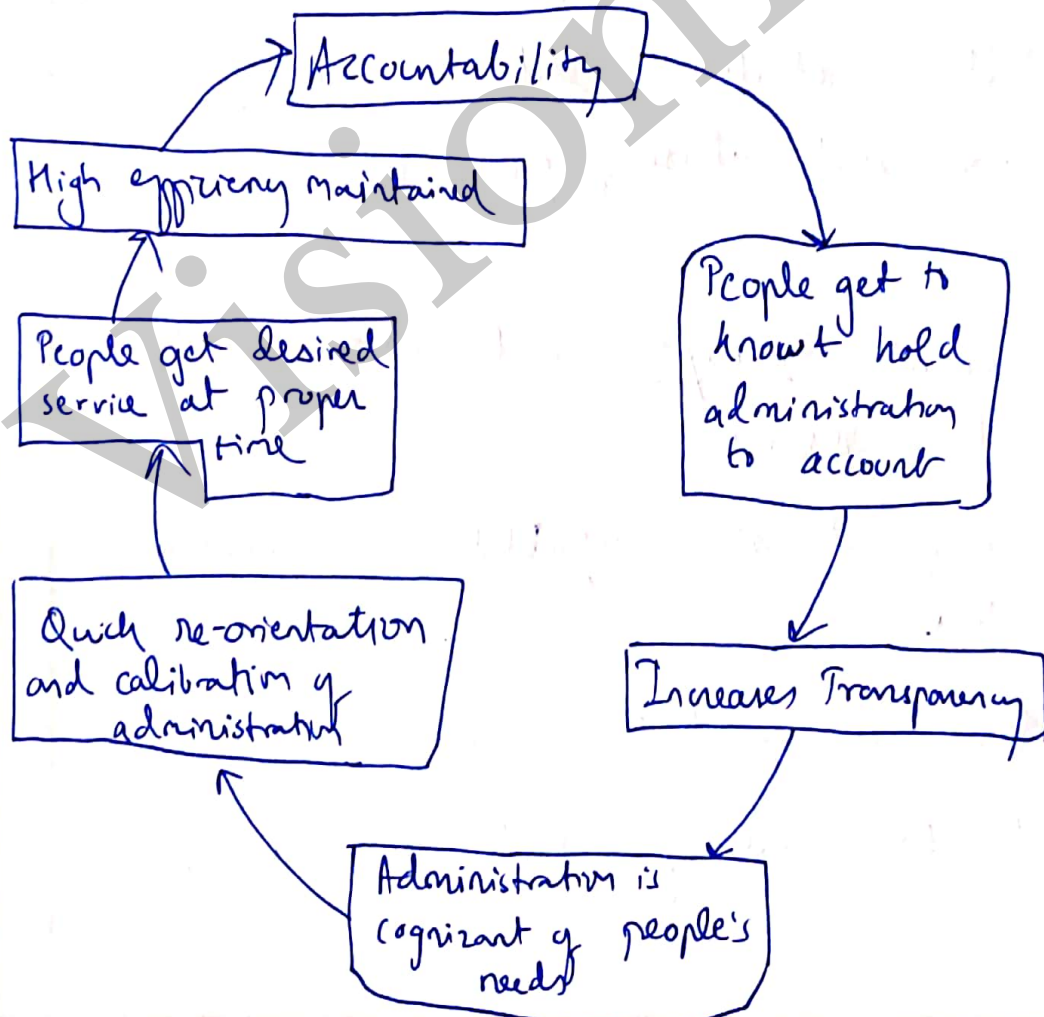 Accountability
People get to
know + hold
administration
to account
Increases Transparency
Administration is
cognizant of people's
needs
Quick re-orientation
and calibration of
administration
People get desired
service at proper
time
High efficiency maintained
Vision